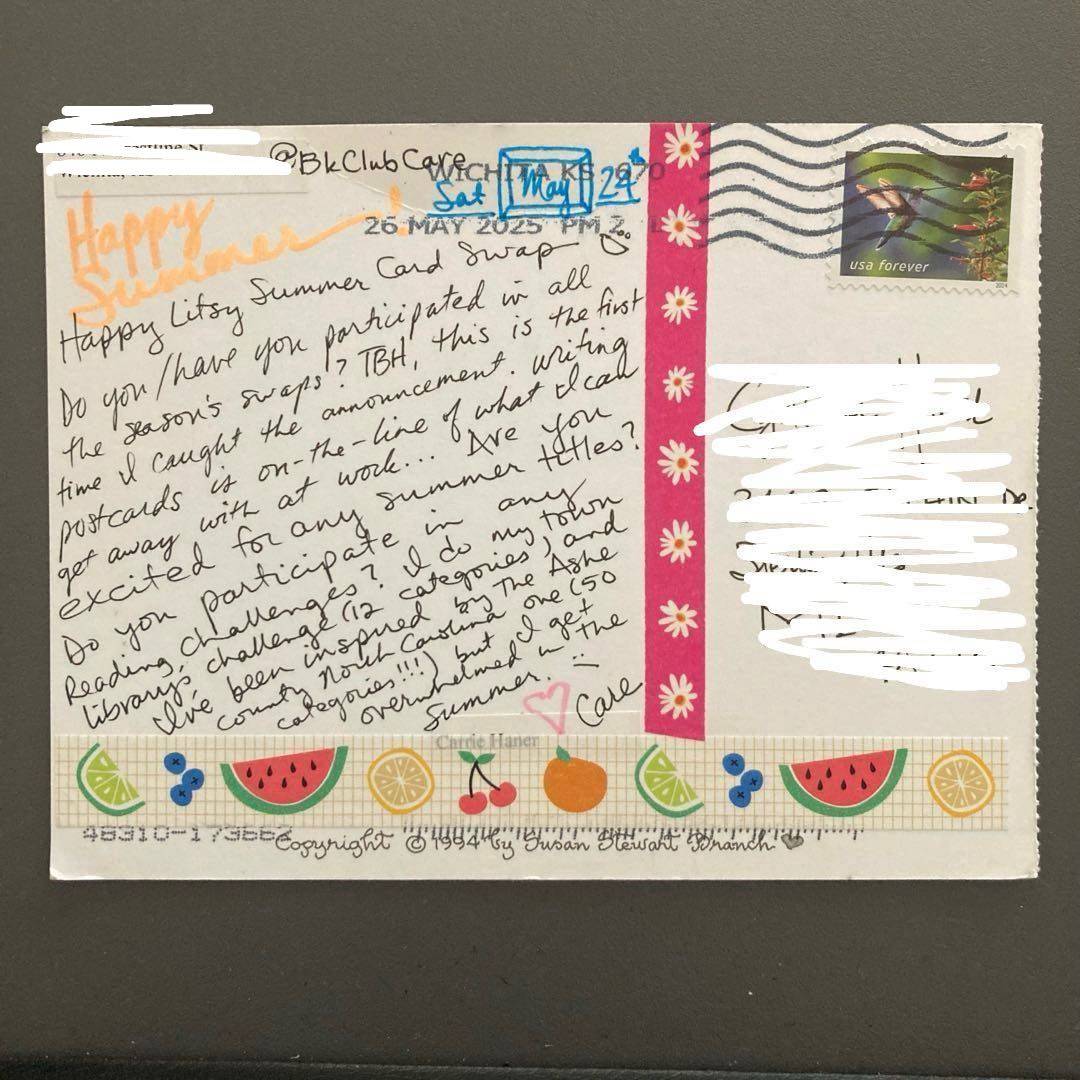 @BkClubCare
WICHITA KS 670
Sat May 24
26 MAY 2025 PM 2 L
Happy
Summer!
usa forever
Happy Litsy Summer Card Swap
Do you/have you participated in all
the season's swaps? TBH, this is the first
time I caught the announcement. Writing
postcards is on-the-line of what I can
get away with at work... Are you
excited for any summer titles?
Do you participate in any
Reading Challenges? I do my town
library's challenge (12 categories) and
I've been inspired by The Ashe
County North Carolina one (50
categories!!!) but I get
overwhelmed in the
summer.
Care
Carrie Haner
48310-173662
Copyright © 1994 by Susan Stewart Branch